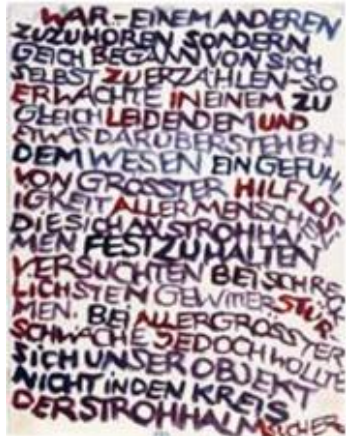 WAR - EINEM ANDEREN
ZUZUHÖREN SONDERN
GLEICH BEGANN VON SICH
SELBST ZU ERZÄHLEN - SO
ERWACHTE IN EINEM ZU
GLEICH LEIDENDEM UND
ETWAS DARÜBERSTEHEN
DEM WESEN EIN GEFÜHL
VON GRÖSSTER HILFLOS
IGKEIT ALLER MENSCHEN
DIE SICH AN STROHHAL
MEN FESTZUHALTEN
VERSUCHTEN BEI SCHRECK
LICHSTEN GEWITTERSTÜR
MEN. BEI ALLERGRÖSSTER
SCHWÄCHE JEDOCH WOLLTE
SICH UNSER OBJEKT
NICHT IN DEN KREIS
DER STROHHALMSUCHER